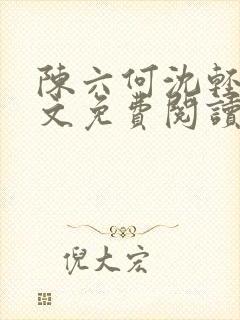 陳六何沈輕
文免費閱讀
倪大宏